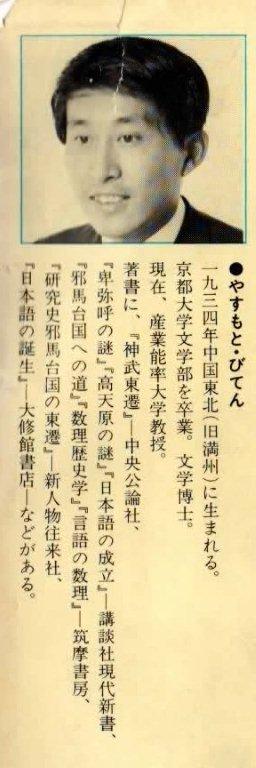 ●やすもと・びてん
一九三四年中国東北(旧満州)に生まれる。
京都大学文学部を卒業。文学博士。
現在、産業能率大学教授。
著書に、『神武東遷』―中央公論社、
『卑弥呼の謎』『高天原の謎』『日本語の成立』―講談社現代新書、
『邪馬台国への道』『数理歴史学』『言語の数理』―筑摩書房、
『研究史邪馬台国の東遷』―新人物往来社、
『日本語の誕生』―大修館書店―などがある。